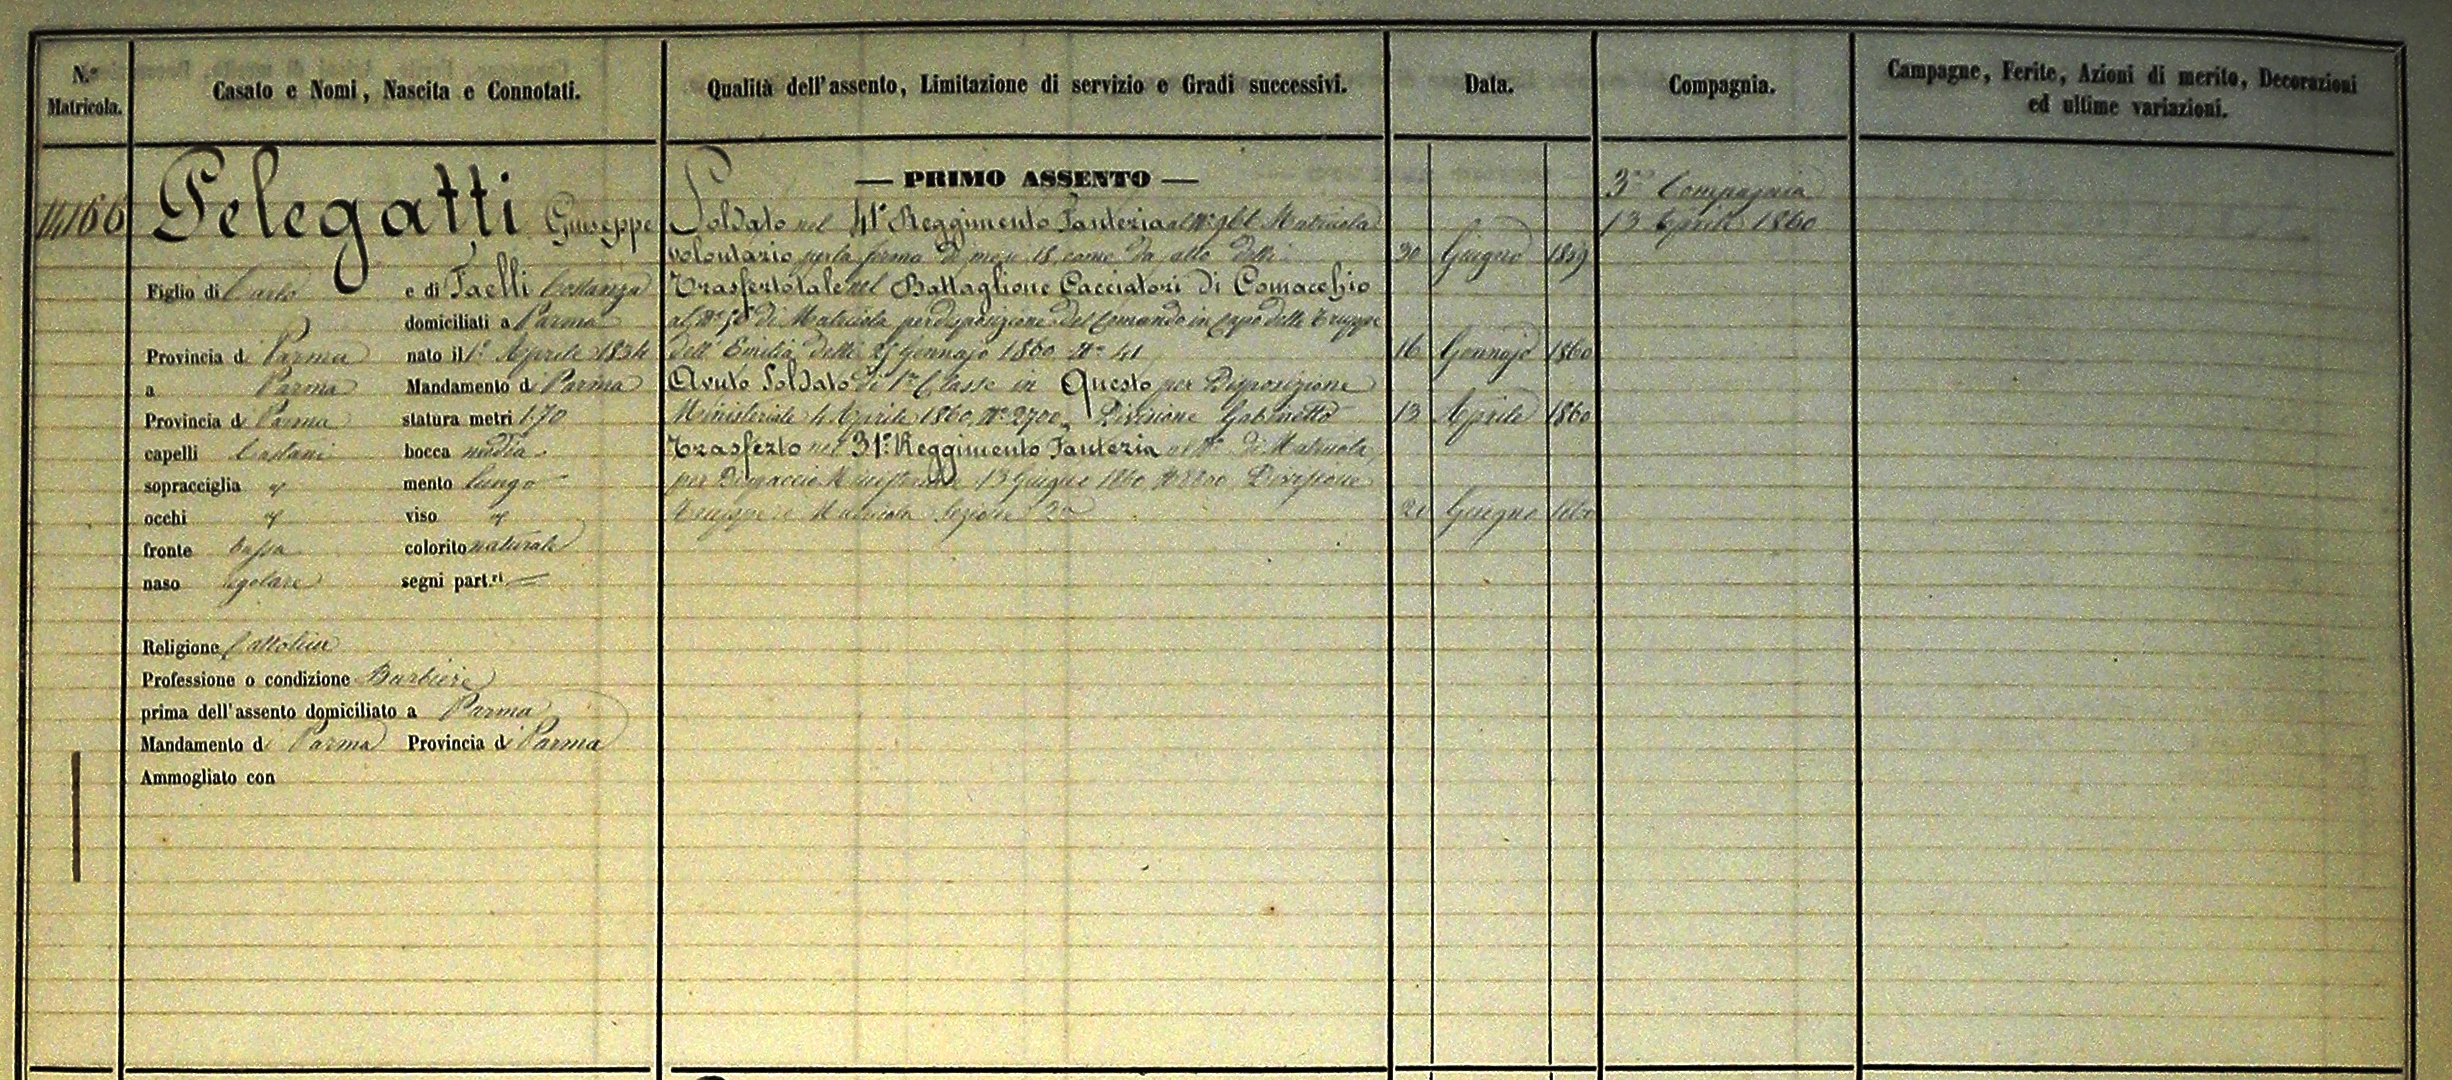 N.° Matricola.
Casato e Nomi, Nascita e Connotati.
Qualità dell'assento, Limitazione di servizio e Gradi successivi.
Data.
Compagnia.
Campagne, Ferite, Azioni di merito, Decorazioni
ed ultime variazioni.
14166
Pelegatti Giuseppe
Figlio di Carlo e di Faelli Costanza
domiciliati a Parma
Provincia di Parma nato il 1° Aprile 1834
a Parma Mandamento di Parma
Provincia di Parma statura metri 1.70
capelli Castani bocca media
sopracciglia " mento lungo
occhi " viso "
fronte bassa colorito naturale
naso regolare segni part.ri —
Religione Cattolica
Professione o condizione Barbiere
prima dell'assento domiciliato a Parma
Mandamento di Parma Provincia di Parma
Ammogliato con
— PRIMO ASSENTO —
Soldato nel 41° Reggimento Fanteria al N° Matricola
volontario per la ferma di mesi 18 come da atto delli 30 Giugno 1859
Trasferto tale nel Battaglione Cacciatori di Comacchio
al N° di Matricola per disposizione del Comando in Capo delle Truppe
dell'Emilia delli Gennajo 1860 N° 41 16 Gennajo 1860
Avuto Soldato di 1a Classe in Questo per Disposizione
Ministeriale 4 Aprile 1860 N° 2700 Divisione Gabinetto 13 Aprile 1860
Trasferto nel 31° Reggimento Fanteria al N° di Matricola
per Dispaccio Ministeriale 13 Giugno 1860 N° 8800 Divisione
Truppe e Matricola Sezione 2a Giugno 1860
3a Compagnia
13 Aprile 1860